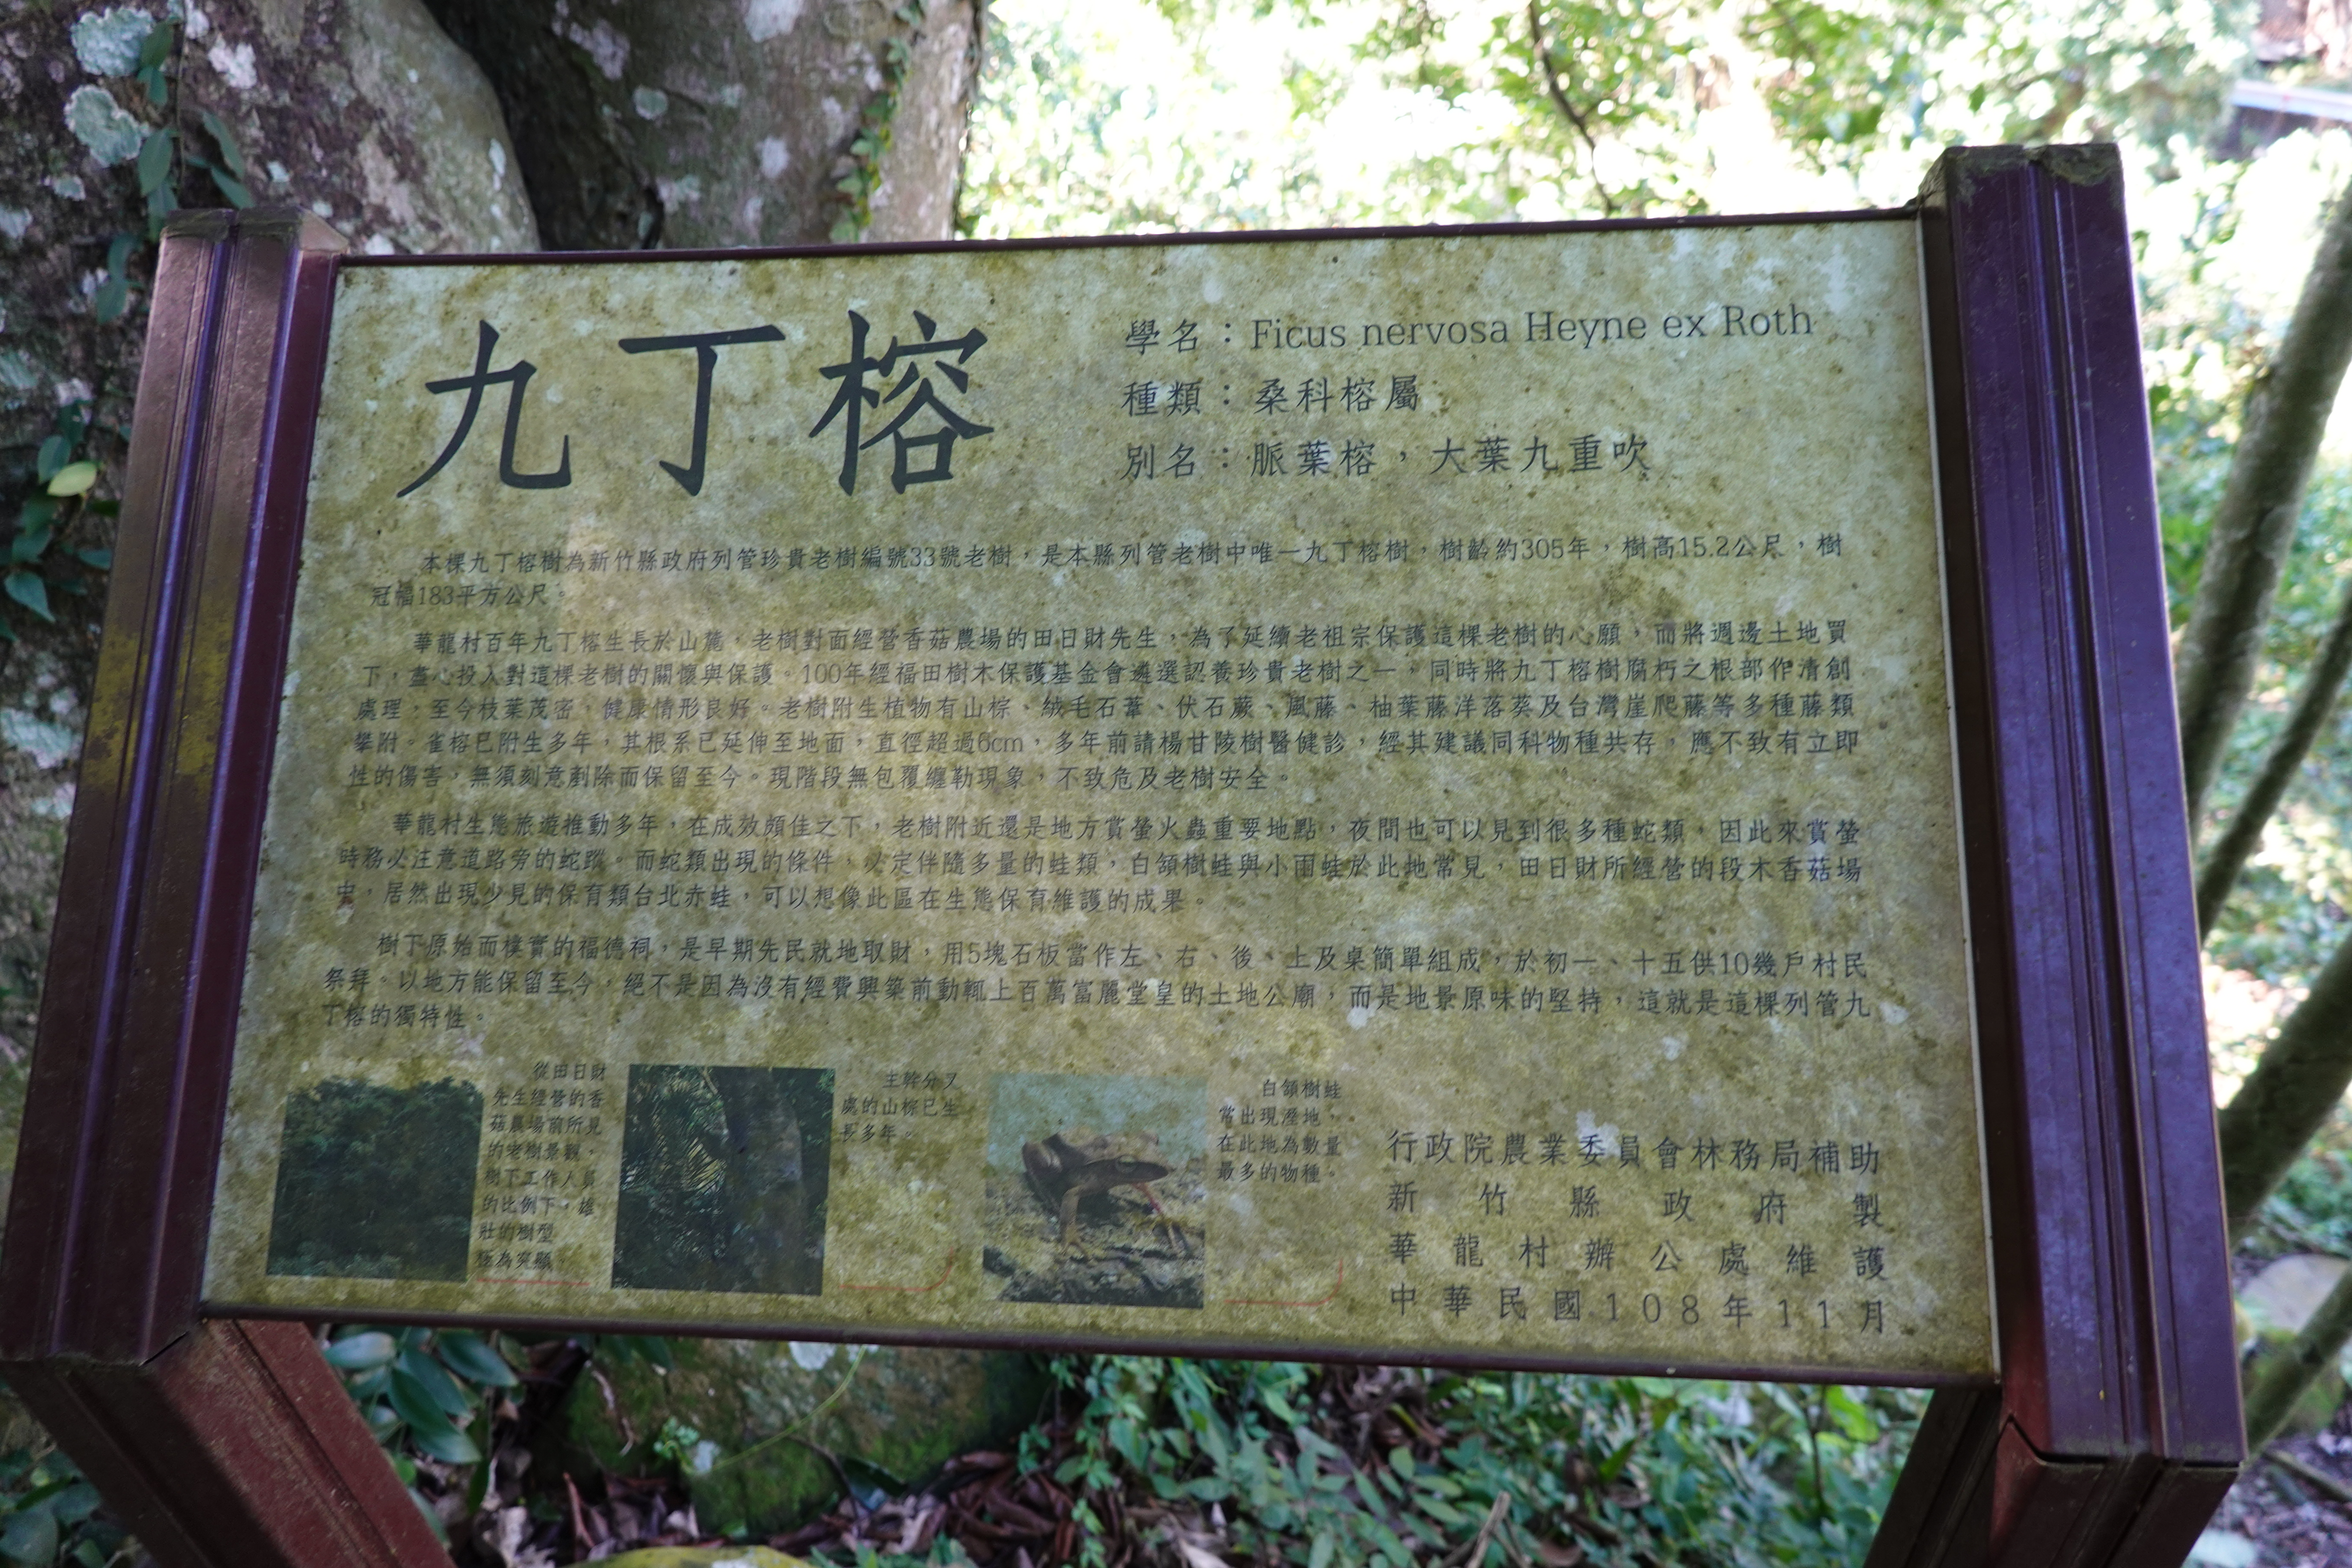 九丁榕
學名：Ficus nervosa Heyne ex Roth
種類：桑科榕屬
別名：脈葉榕，大葉九重吹
本棵九丁榕樹為新竹縣政府列管珍貴老樹編號33號老樹，是本縣列管老樹中唯一九丁榕樹，樹齡約305年，樹高15.2公尺，樹
冠幅183平方公尺。
華龍村百年九丁榕生長於山麓，老樹對面經營香菇農場的田日財先生，為了延續老祖宗保護這棵老樹的心願，而將週邊土地買
下，盡心投入對這棵老樹的關懷與保護。100年經福田樹木保護基金會遴選認養珍貴老樹之一，同時將九丁榕樹腐朽之根部作清創
處理，至今枝葉茂密，健康情形良好。老樹附生植物有山棕、絨毛石葦、伏石蕨、風藤、柚葉藤洋落葵及台灣崖爬藤等多種藤類
攀附。雀榕已附生多年，其根系已延伸至地面，直徑超過6cm，多年前請楊甘陵樹醫健診，經其建議同科物種共存，應不致有立即
性的傷害，無須刻意剷除而保留至今。現階段無包覆纏勒現象，不致危及老樹安全。
華龍村生態旅遊推動多年，在成效頗佳之下，老樹附近還是地方賞螢火蟲重要地點，夜間也可以見到很多種蛇類，因此來賞螢
時務必注意道路旁的蛇蹤。而蛇類出現的條件，必定伴隨多量的蛙類，白頷樹蛙與小雨蛙於此地常見，田日財所經營的段木香菇場
中，居然出現少見的保育類台北赤蛙，可以想像此區在生態保育維護的成果。
樹下原始而樸實的福德祠，是早期先民就地取財，用5塊石板當作左、右、後、上及桌簡單組成，於初一、十五供10幾戶村民
祭拜。以地方能保留至今，絕不是因為沒有經費興築前動輒上百萬富麗堂皇的土地公廟，而是地景原味的堅持，這就是這棵列管九
丁榕的獨特性。
從田日財
先生經營的香
菇農場前所見
的老樹景觀，
樹下工作人員
的比例下，雄
壯的樹型
極為突顯。
主幹分叉
處的山棕已生
長多年。
白頷樹蛙
常出現溼地，
在此地為數量
最多的物種。
行政院農業委員會林務局補助
新竹縣政府製
華龍村辦公處維護
中華民國108年11月